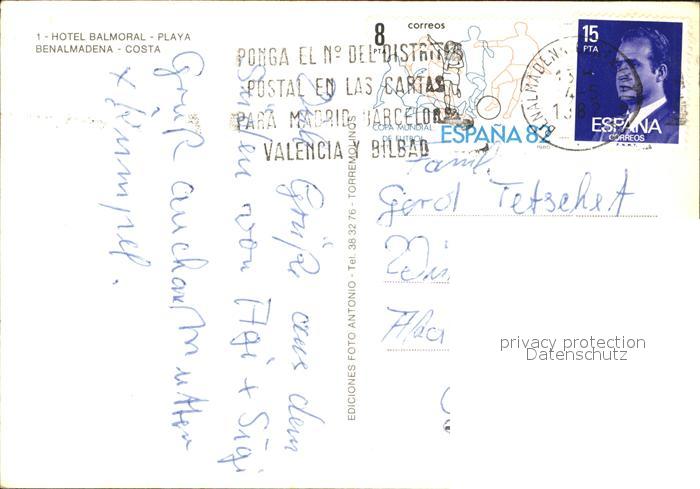 1 - HOTEL BALMORAL - PLAYA
BENALMADENA - COSTA
Grüße aus dem
Süden von Agi + Sigi
Gruß auch an Mutter
EDICIONES FOTO ANTONIO - Tel. 38 32 76 - TORREMOLINOS
PONGA EL Nº DEL DISTRITO
POSTAL EN LAS CARTAS
PARA MADRID BARCELONA
VALENCIA Y BILBAO
8
PTA
correos
COPA MUNDIAL
DE FUTBOL
ESPAÑA 82
1980
15
PTA
ESPAÑA
CORREOS
Famil.
Gerol Tetschet
privacy protection
Datenschutz